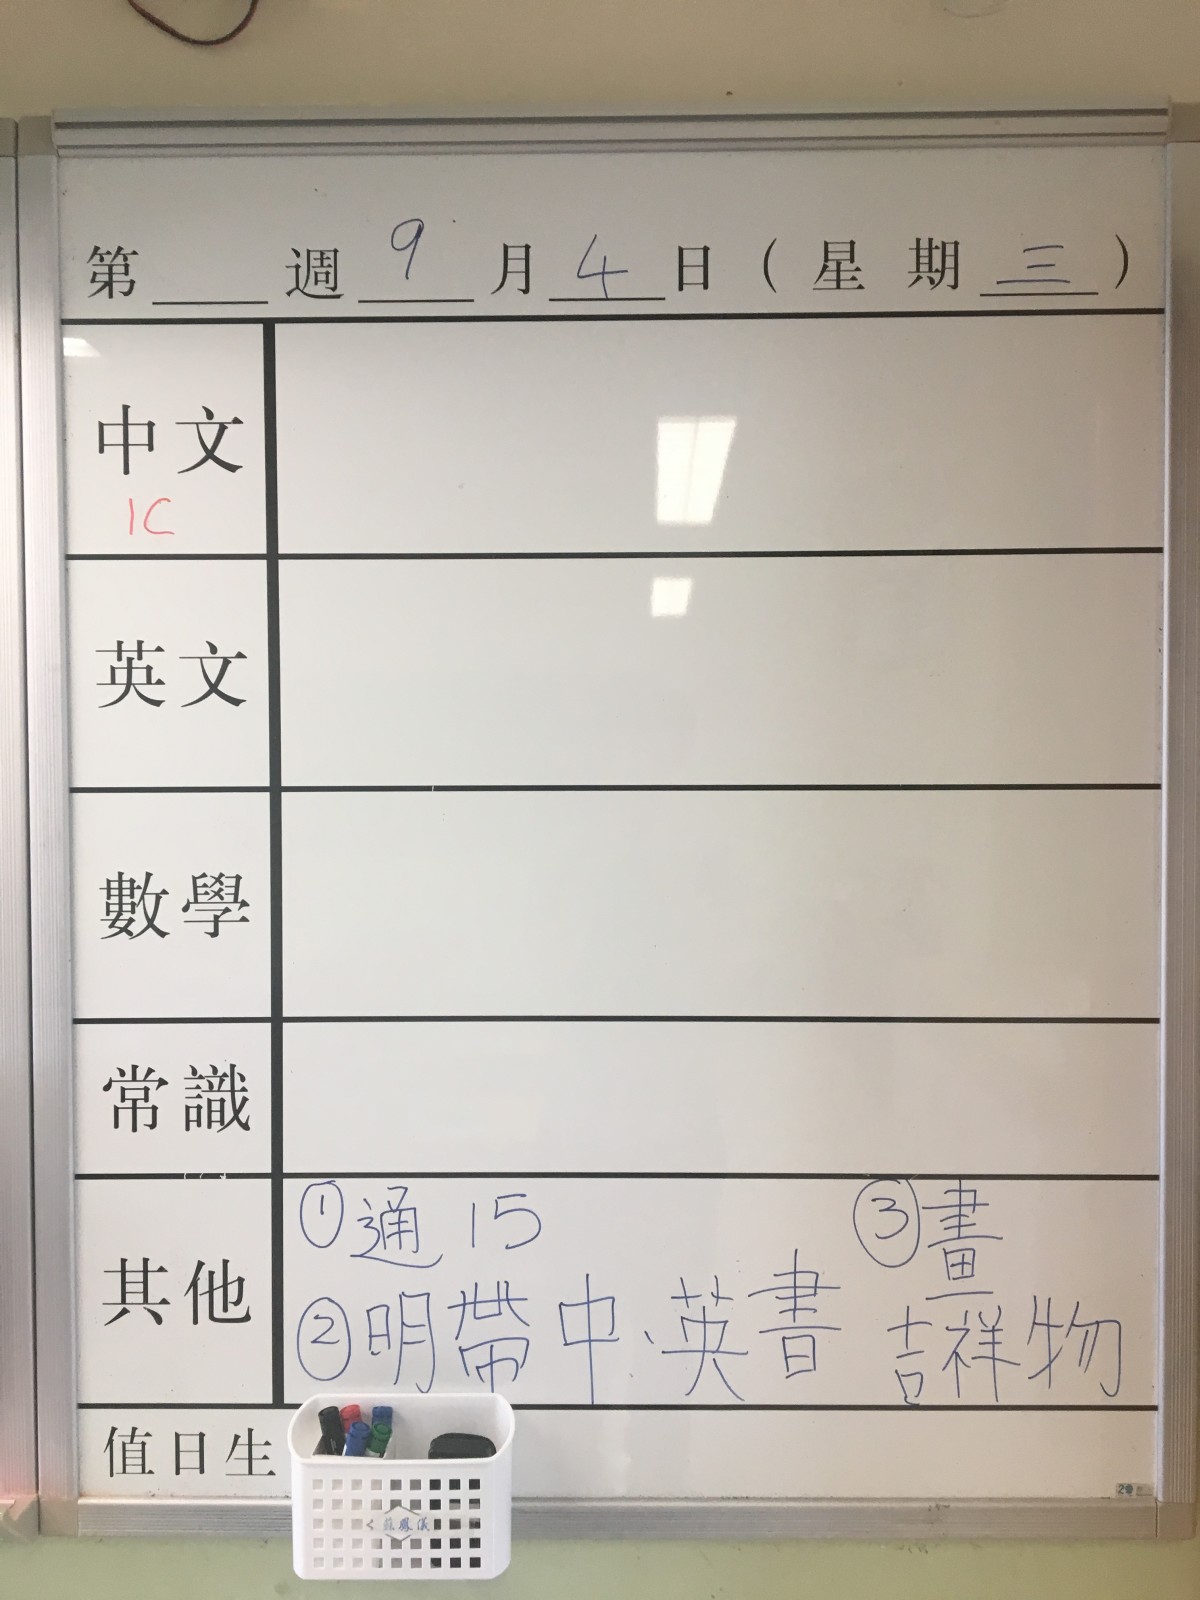 第 週 9 月 4 日 ( 星 期 三 )
中文
1C
英文
數學
常識
其他
① 通 15
② 明帶中、英書
③ 畫
吉祥物
值日生